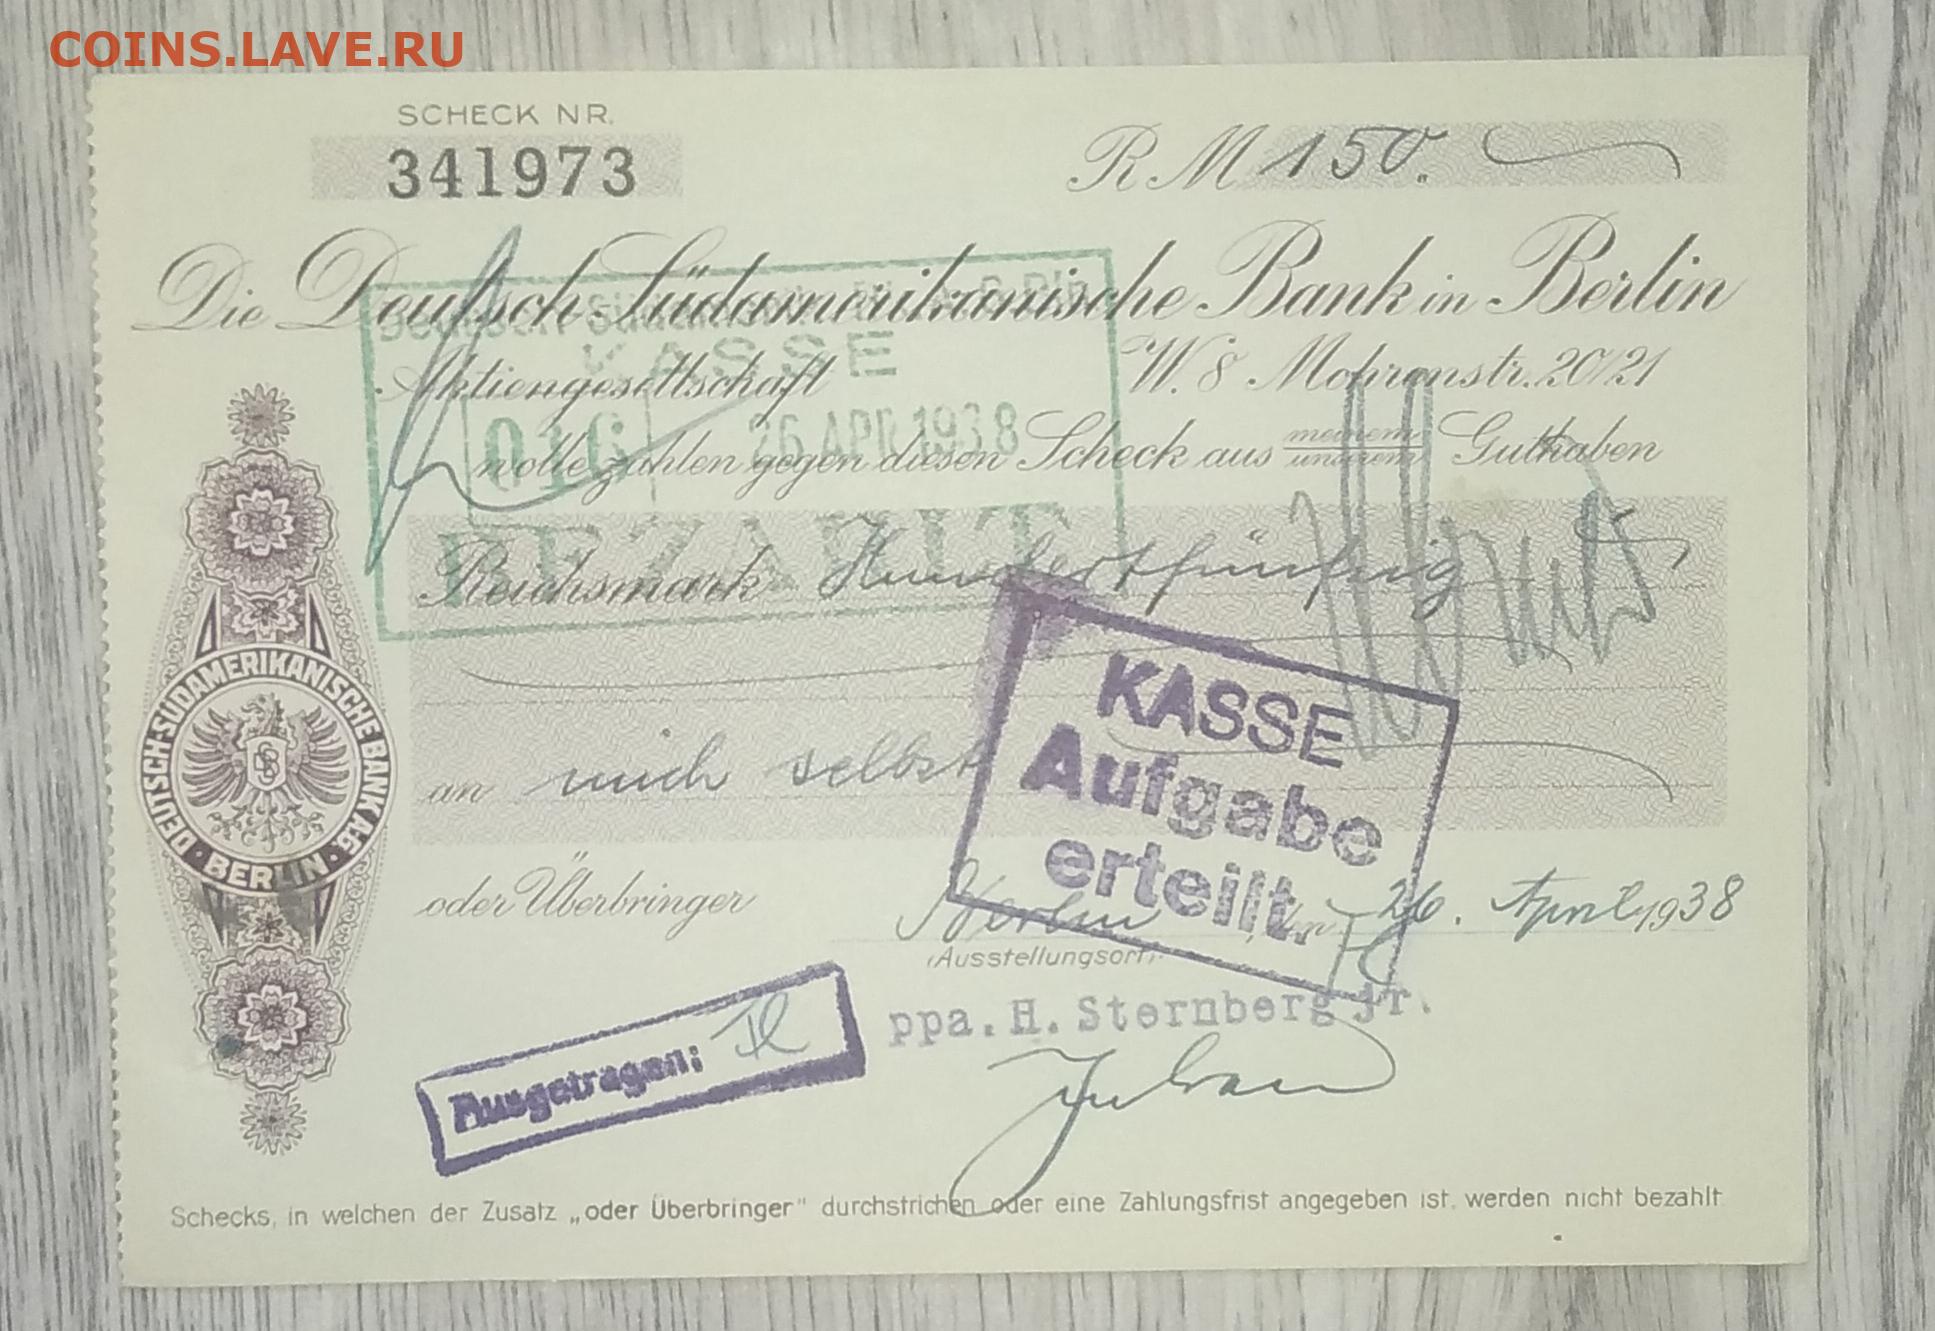 COINS.LAVE.RU
SCHECK NR.
341973
RM 150.
Die Deutsch-Südamerikanische Bank in Berlin
Aktiengesellschaft W. 8 Mohrenstr. 20/21
KASSE
016 26 APR. 1938
wolle zahlen gegen diesen Scheck aus meinem unserem Guthaben
BEZAHLT
Reichsmark Hundertfünfzig
KASSE
Aufgabe
erteilt.
an mich selbst
DEUTSCH-SÜDAMERIKANISCHE BANK A.G.
· BERLIN ·
oder Überbringer
Berlin, den 26. April 1938
(Ausstellungsort)
ppa. H. Sternberg jr.
Ausgetragen:
Schecks, in welchen der Zusatz „oder Überbringer" durchstrichen oder eine Zahlungsfrist angegeben ist, werden nicht bezahlt